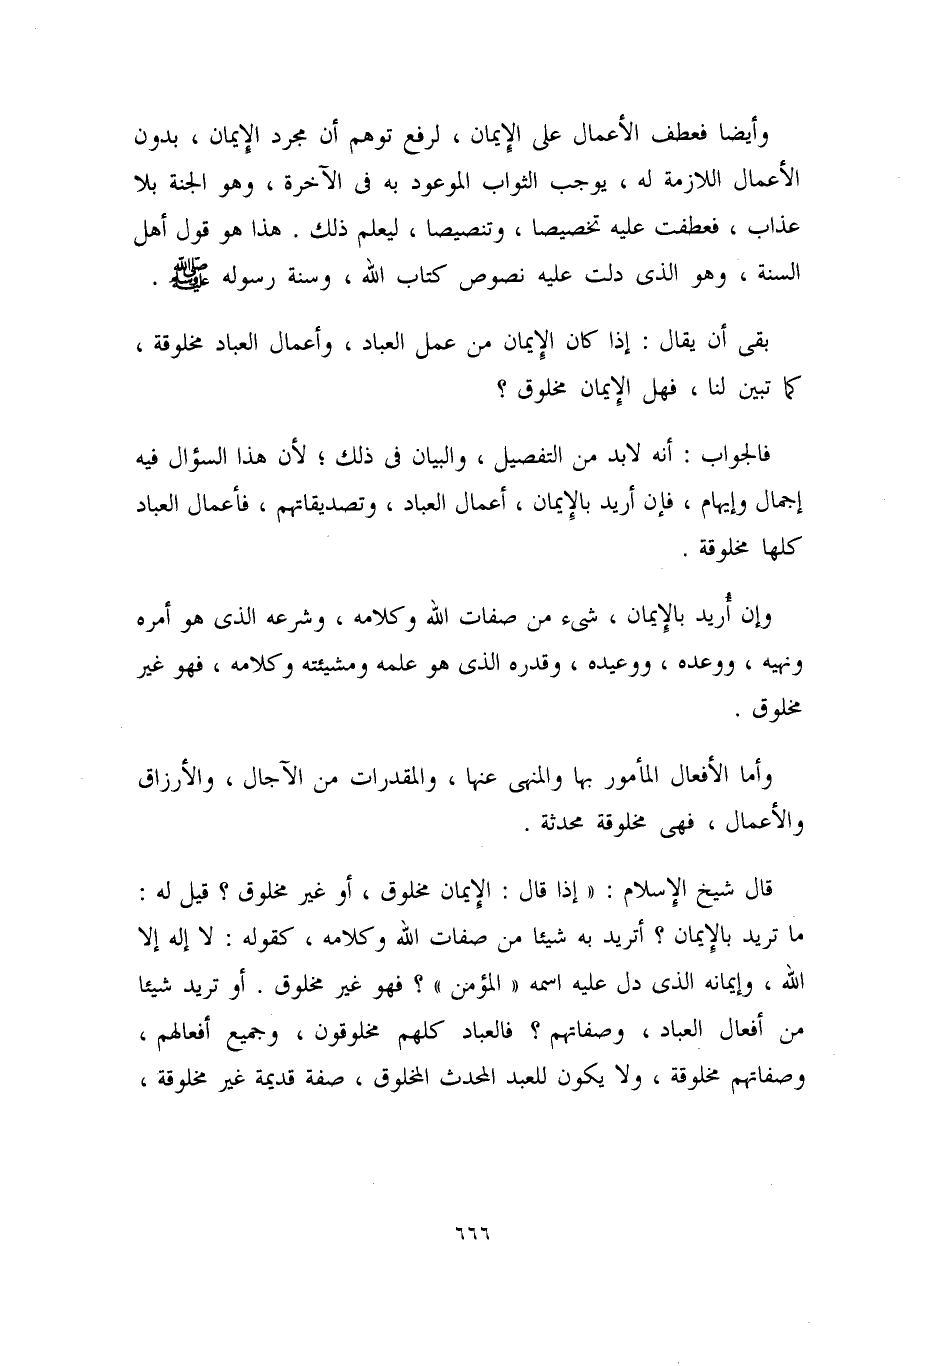 وأيضا فعطف الأعمال على الإيمان ، لرفع توهم أن مجرد الإيمان ، بدون
الأعمال اللازمة له ، يوجب الثواب الموعود به فى الآخرة ، وهو الجنة بلا
عذاب ، فعطفت عليه تخصيصا ، وتنصيصا ، ليعلم ذلك . هذا هو قول أهل
السنة ، وهو الذى دلت عليه نصوص كتاب الله ، وسنة رسوله ﷺ .
بقى أن يقال : إذا كان الإيمان من عمل العباد ، وأعمال العباد مخلوقة ،
كما تبين لنا ، فهل الإيمان مخلوق ؟
فالجواب : أنه لابد من التفصيل ، والبيان فى ذلك ؛ لأن هذا السؤال فيه
إجمال وإيهام ، فإن أريد بالإيمان ، أعمال العباد ، وتصديقاتهم ، فأعمال العباد
كلها مخلوقة .
وإن أُريد بالإيمان ، شىء من صفات الله وكلامه ، وشرعه الذى هو أمره
ونهيه ، ووعده ، ووعيده ، وقدره الذى هو علمه ومشيئته وكلامه ، فهو غير
مخلوق .
وأما الأفعال المأمور بها والمنهى عنها ، والمقدرات من الآجال ، والأرزاق
والأعمال ، فهى مخلوقة محدثة .
قال شيخ الإسلام : « إذا قال : الإيمان مخلوق ، أو غير مخلوق ؟ قيل له :
ما تريد بالإيمان ؟ أتريد به شيئا من صفات الله وكلامه ، كقوله : لا إله إلا
الله ، وإيمانه الذى دل عليه اسمه « المؤمن » ؟ فهو غير مخلوق . أو تريد شيئا
من أفعال العباد ، وصفاتهم ؟ فالعباد كلهم مخلوقون ، وجميع أفعالهم ،
وصفاتهم مخلوقة ، ولا يكون للعبد المحدث المخلوق ، صفة قديمة غير مخلوقة ،
٦٦٦